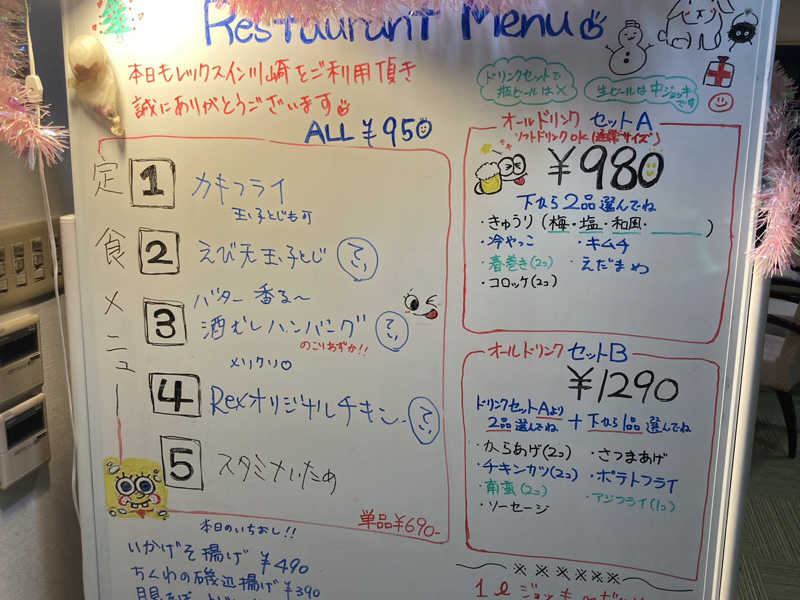 Restaurant Menu
本日もレックスイン川崎をご利用頂き
誠にありがとうございます
ALL ¥950
定食メニュー
1 カキフライ
玉子とじも可
2 えび天玉子とじ
3 バター香る〜
酒むしハンバーグ
のこりあずか!!
メリクリ
4 Rexオリジナルチキン
5 スタミナいため
単品¥690-
本日のいちおし!!
いかげそ揚げ ¥490
ちくわの磯辺揚げ ¥390
ドリンクセットで
生ビールは×
生ビールは中ジョッキです
オールドリンク セットA
ソフトドリンクOK(通常サイズ)
¥980
下から2品選んでね
・きゅうり(梅・塩・和風・ )
・冷やっこ ・キムチ
・春巻き(2コ) ・えだまめ
・コロッケ(2コ)
オールドリンク セットB
¥1290
ドリンクセットAより
2品選んでね + 下から1品選んでね
・からあげ(2コ) ・さつまあげ
・チキンカツ(2コ) ・ポテトフライ
・南蛮(2コ) ・アジフライ(1コ)
・ソーセージ